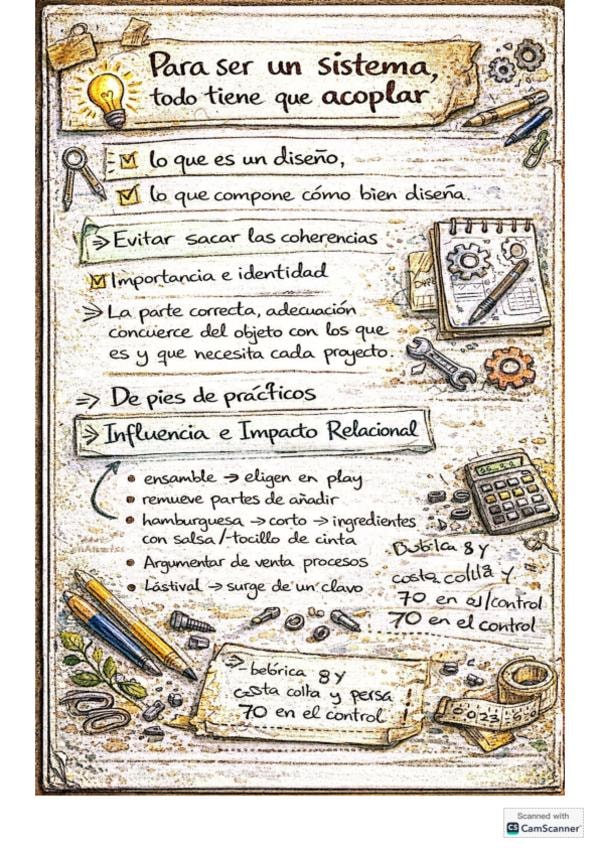 Para ser un sistema,
todo tiene que acoplar
lo que es un diseño,
lo que compone cómo bien diseña.
⇒ Evitar sacar las coherencias
Importancia e identidad
⇒ La parte correcta, adecuación
concuerce del objeto con los que
es y que necesita cada proyecto.
⇒ De pies de prácticos
⇒ Influencia e Impacto Relacional
• ensamble → eligen en play
• remueve partes de añadir
• hamburguesa → corto → ingredientes
con salsa/-tocillo de cinta
• Argumentar de venta procesos
• Lástival → surge de un clavo
8 y
costa y
70 en el/control
70 en el control
⇒ - bebírica 8 y
costa colta y persa !
70 en el control !
Scanned with
CS CamScanner